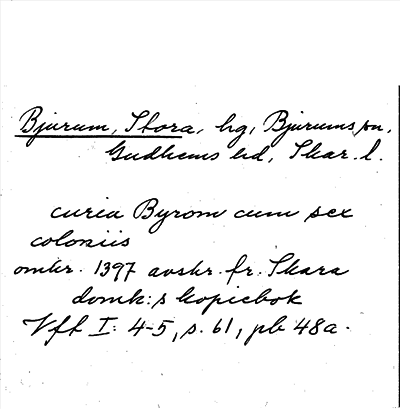 Bjurum, Stora, hg, Bjurums sn,
Gudhems hd, Skar. l.
curia Byrom cum sex
coloniis
omkr. 1397 avskr. fr. Skara
domk:s kopiebok
Vft I: 4-5, s. 61, pb 48a.